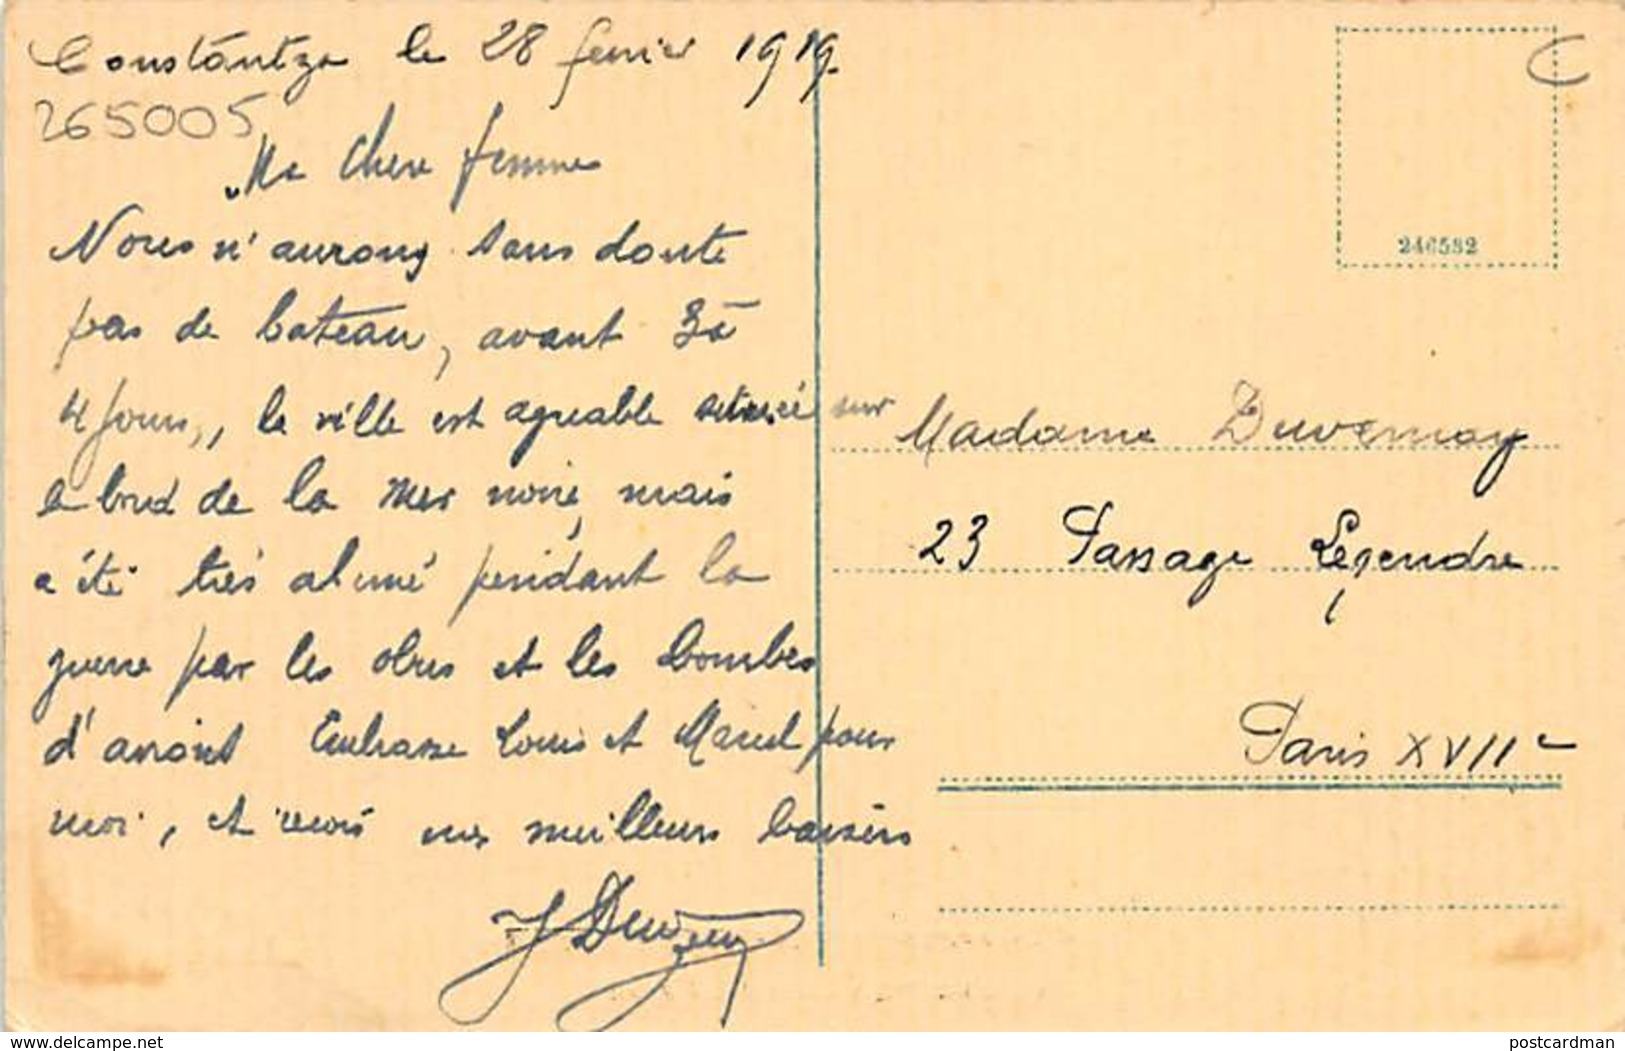 Constântza le 28 fevrier 1919.
265005
Ma Chere femme
Nous n'aurons sans doute
pas de bateau, avant 3 à
4 Jours, la ville est agreable située sur
le bord de la Mer noire, mais
a été très abimé pendant la
guerre par les obus et les bombes
d'avions Embrasse Louis et Marcel pour
moi, et reçois mes meilleurs baisers
J Duvernay
246532
Madame Duvernay
23 Passage Legendre
Paris XVIIe
www.delcampe.net
postcardman